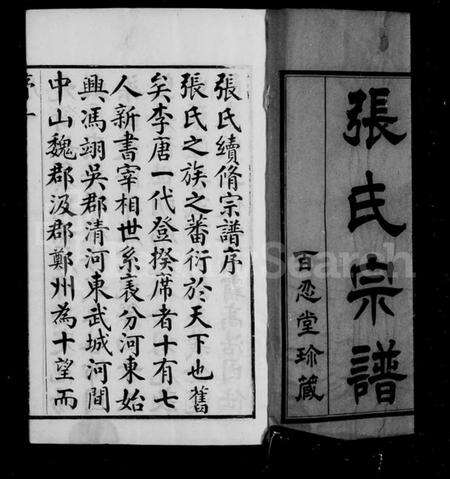 張氏宗譜
百忍堂珍藏
張氏續脩宗譜序
張氏之族之蕃衍於天下也舊
矣李唐一代登揆席者十有七
人新書宰相世系表分河東始
興馮翊吳郡清河東武城河間
中山魏郡汲郡鄭州為十望而